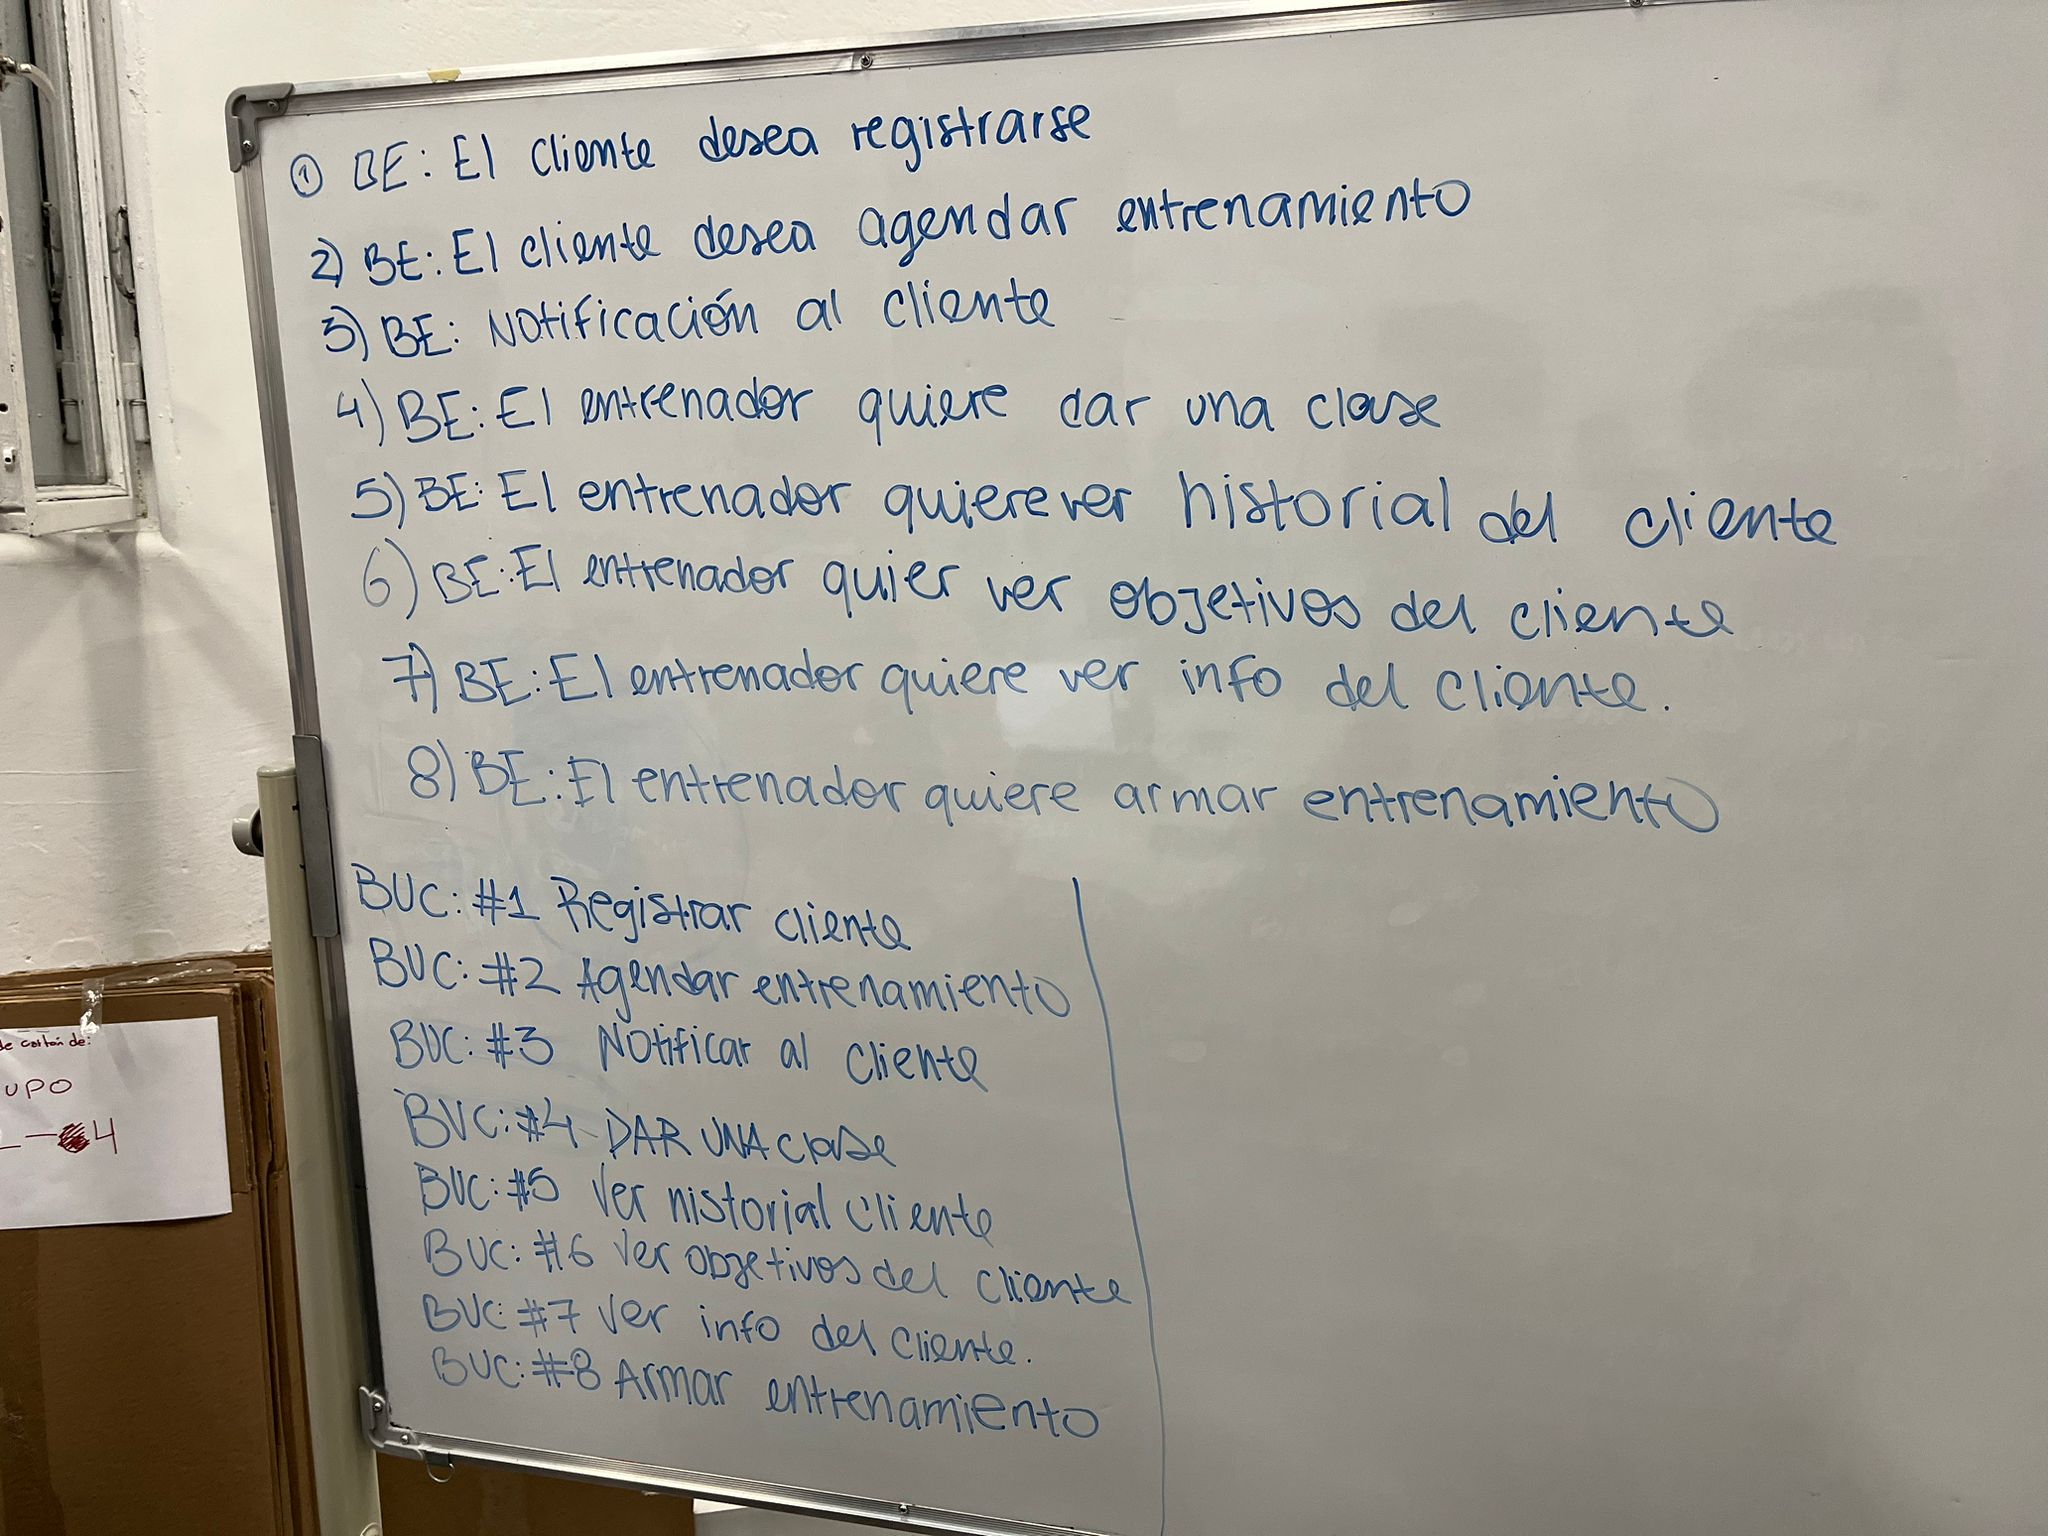 ① BE: El cliente desea registrarse
2) BE: El cliente desea agendar entrenamiento
3) BE: Notificación al cliente
4) BE: El entrenador quiere dar una clase
5) BE: El entrenador quiere ver historial del cliente
6) BE: El entrenador quier ver objetivos del cliente
7) BE: El entrenador quiere ver info del cliente.
8) BE: El entrenador quiere armar entrenamiento
BUC: #1 Registrar cliente
BUC: #2 Agendar entrenamiento
BUC: #3 Notificar al cliente
BUC: #4 DAR UNA clase
BUC: #5 Ver historial cliente
BUC: #6 Ver objetivos del cliente
BUC: #7 Ver info del cliente.
BUC: #8 Armar entrenamiento
de cartón de:
UPO
4